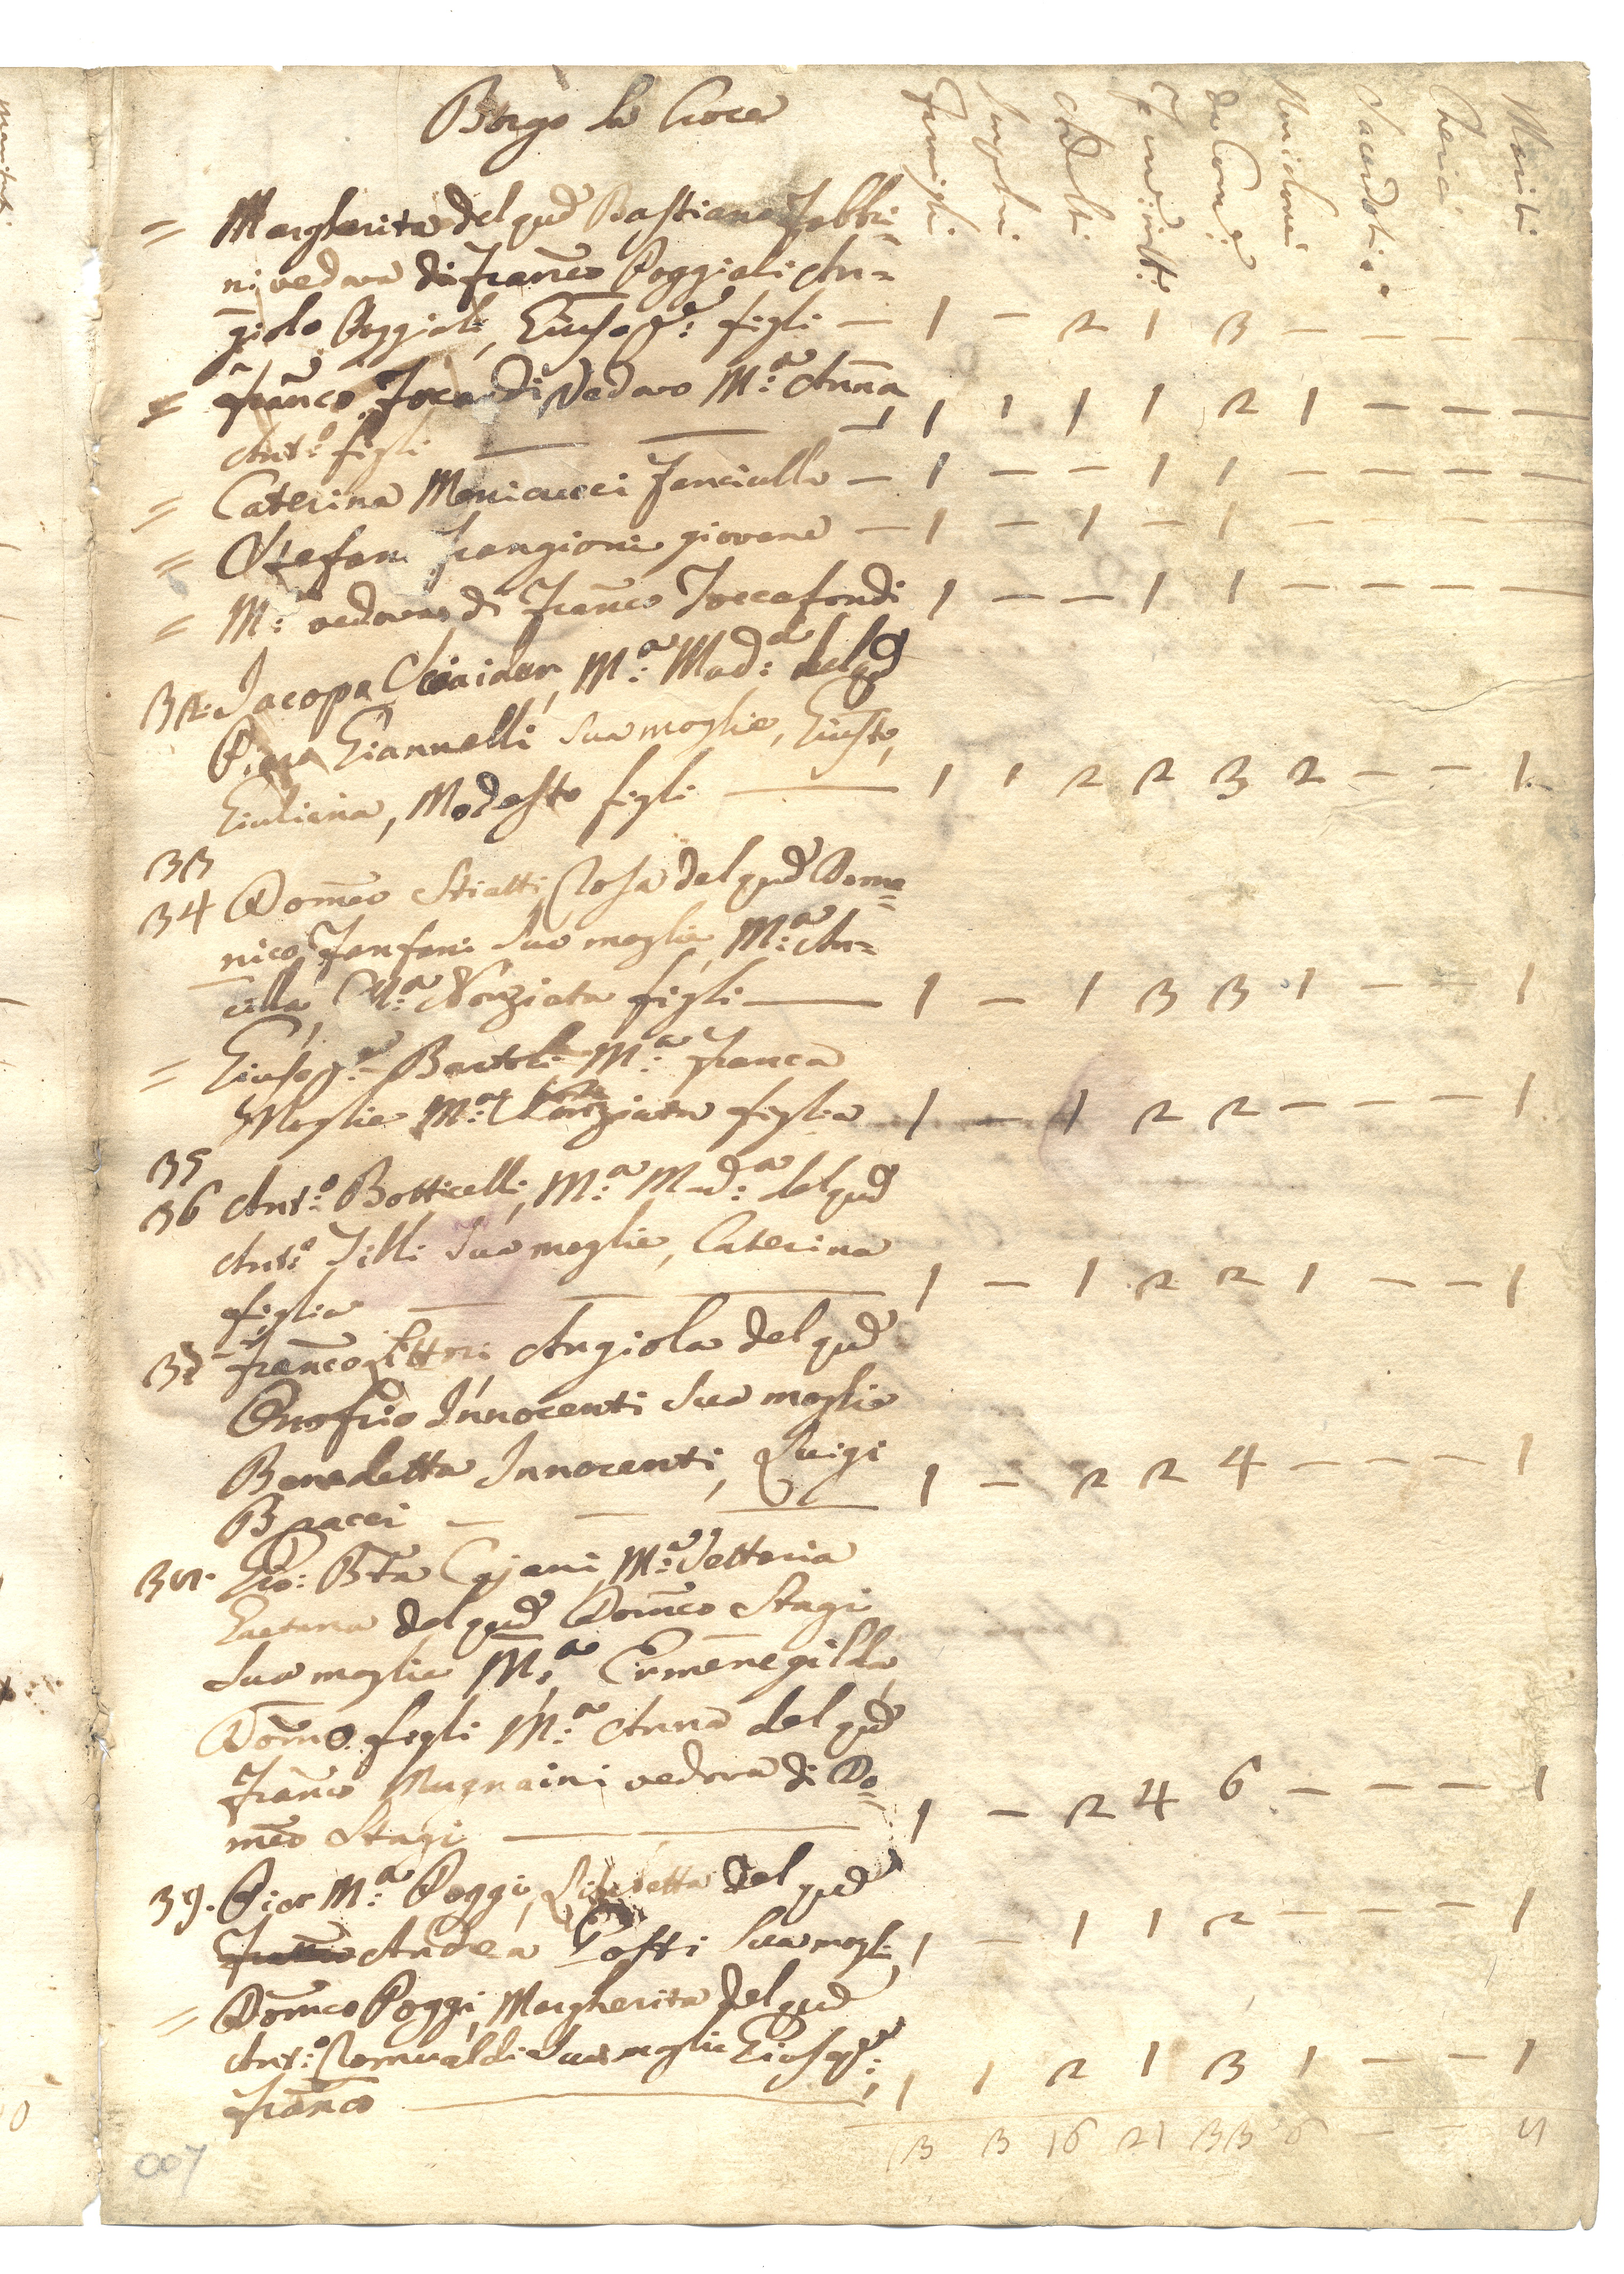 Borgo la Croce
Famigli:
Angeli:
Adulti
Femin: adt:
da Com:e
Non da Com:e
Sacerdoti
Cherici
Mariti
= Margherita del qud Bastiano Fabbri=
ni vedova di Franco Poggiali An=
giolo Poggiali, Giusepe: figli — 1 – 2 1 3 – – – –
= Franco Focardi Vedovo M:a Anna
Ant:o figli — — — 1 1 1 1 2 1 – – –
= Caterina Menicucci Fanciulla — 1 – – 1 1 – – – –
= Stefano Frangioni giovane — 1 – 1 – 1 – – – –
= M:a vedova di Franco Toccafondi 1 – – 1 1 – – – –
32. Jacopo M:a Mad:a del qd
Piero Giannelli sua moglie, Giusto,
Giuliana, Modesto figli — 1 1 2 2 3 2 – – 1.
33
34 Domco Stiatti, Rosa del qud Dome=
nico Fanfani sua moglie, M:a An=
cilla, M:a Nonziata figli — 1 – 1 3 3 1 – – 1
= Giusepe: Bartoli, M:a Franca
Moglie M:a Nonziata figlia 1 – 1 2 2 – – – 1
35
36 Ant:o Botticelli, M:a Mad:a del qud
Ant:o Tilli sua moglie, Caterina
figlia — — — 1 – 1 2 2 1 – – 1
37 Franco Littori Angiola del qud
Onofrio Innocenti sua moglie
Benedetta Innocenti, Luigi
Bracci — — — 1 – 2 2 4 – – – 1
38. Gio: Bta Cajani, M:a Vettoria
Gaetana del qud Domco Stagi
sua moglie M:a Ermenegilda,
Domo. figli M:a Anna del qud
Franco Mugnaini vedova di Do=
mco Stagi — — 1 – 2 4 6 – – – 1
39. Pier M:a Poggi, Lisabetta del qud
Andrea Posti sua mogli, 1 – 1 1 2 – – – 1
= Domco Poggi, Margherita del qud
Ant:o Romualdi sua moglie Giusepe:,
Franco — 1 1 2 1 3 1 – – 1
13 3 16 21 33 6 – – 8
007